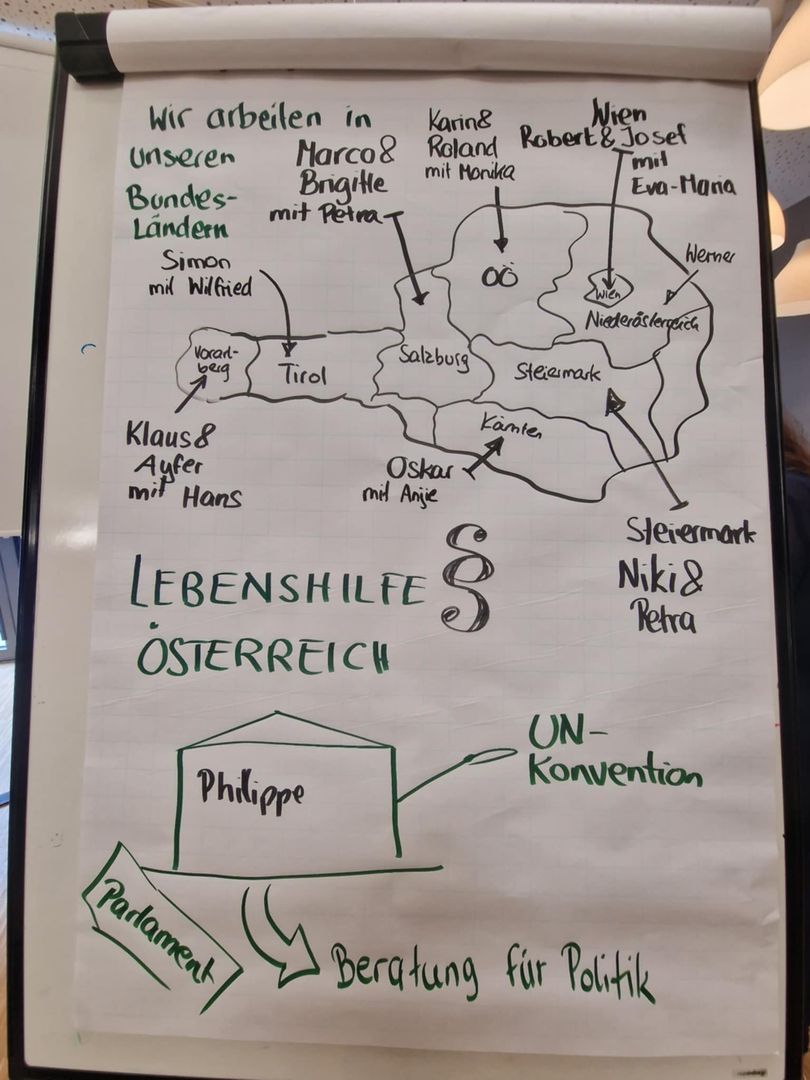 Wir arbeiten in
unseren
Bundes-
Ländern
Marco &
Brigitte
mit Petra
Karin &
Roland
mit Monika
Wien
Robert & Josef
mit
Eva-Maria
Simon
mit Wilfried
Werner
OÖ
Wien
Niederösterreich
Vorarl-
berg
Tirol
Salzburg
Steiermark
Kärnten
Klaus &
Ayfer
mit Hans
Oskar
mit Anjie
Steiermark
Niki &
Petra
LEBENSHILFE §
ÖSTERREICH
UN-
Konvention
Philippe
Parlament
Beratung für Politik